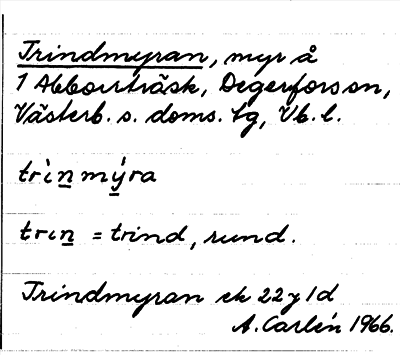 Trindmyran, myr å
1 Abborrträsk, Degerfors sn,
Västerb. s. doms. tg, Vb. l.
trìn mýra
trın = trind, rund.
Trindmyran ek 22 y 1 d
A. Carlén 1966.